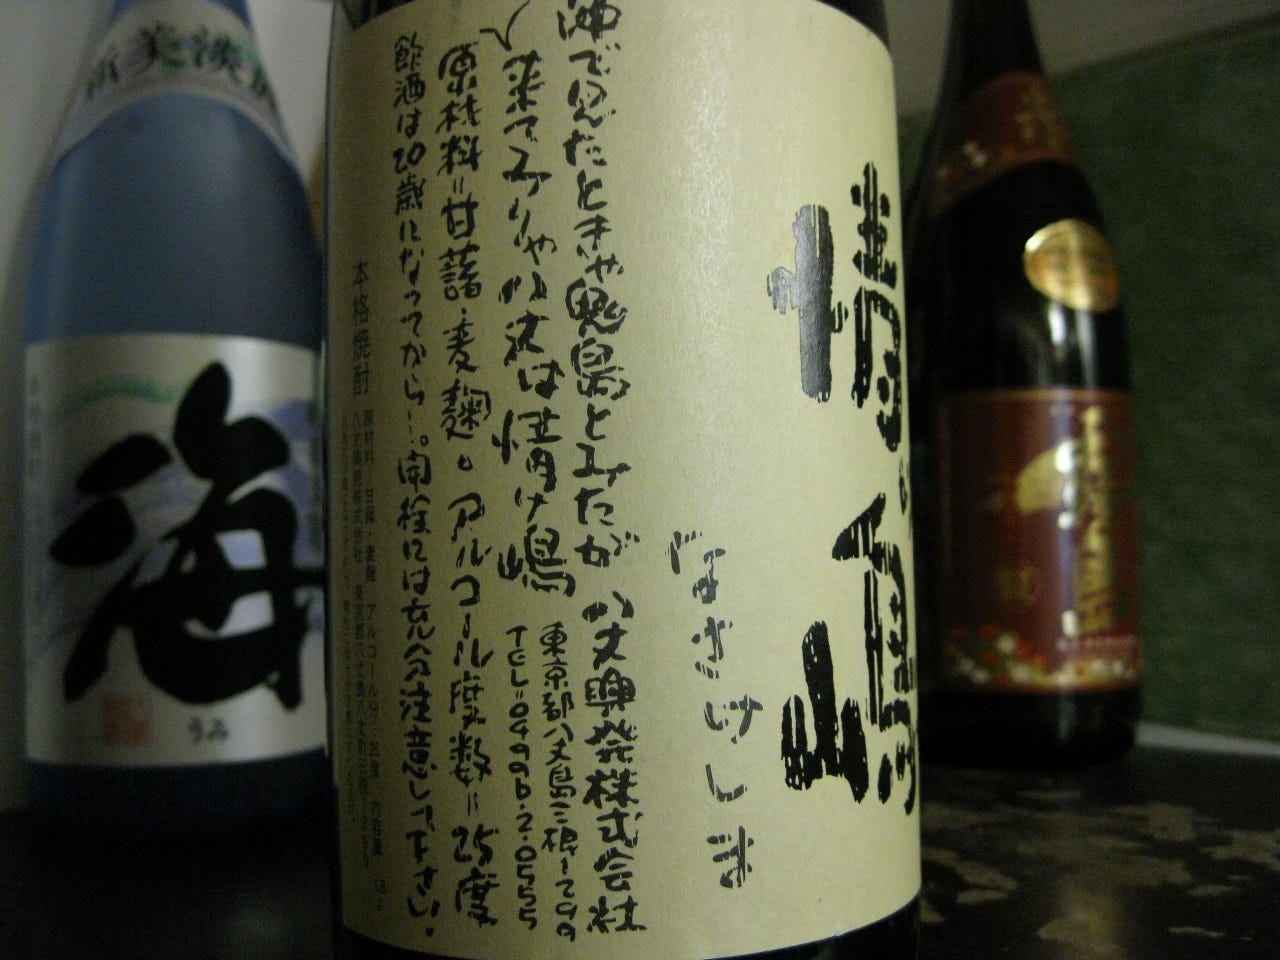 情け嶋
なさけしま
沖でみたときや鬼島とみたが
八丈興発株式会社
来てみりや八丈は情け嶋
東京都八丈島三根1-299
TEL=04996.2.0555
原材料=甘藷・麦麹。アルコール度数=25度
飲酒は20歳になってから…。開栓には充分注意して下さい。
本格焼酎
原材料 甘藷・麦麹 アルコール分 25度 内容量 1.8L
八丈興発株式会社 東京都八丈島八丈町三根1299
海
うみ
美淡